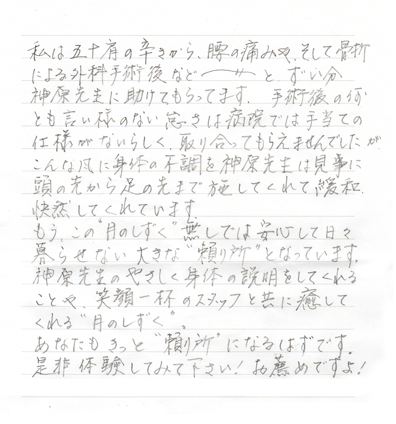 私は五十肩の辛さから、腰の痛みや、そして骨折
による外科手術後など 〜 と ずい分
神原先生に助けてもらってます。手術後の何
とも言い様のない怠さは病院では手当ての
仕様がないらしく、取り合ってもらえませんでしたが
こんな風に身体の不調を神原先生は見事に
頭の先から足の先まで施してくれて、緩和、
快癒してくれています。
もう、この"月のしずく"無しでは安心して日々
暮らせない大きな"頼り所"となっています。
神原先生のやさしく身体の説明をしてくれる
ことや、笑顔一杯のスタッフと共に癒して
くれる"月のしずく"。
あなたもきっと"頼り所"になるはずです。
是非体験してみて下さい!お薦めですよ!